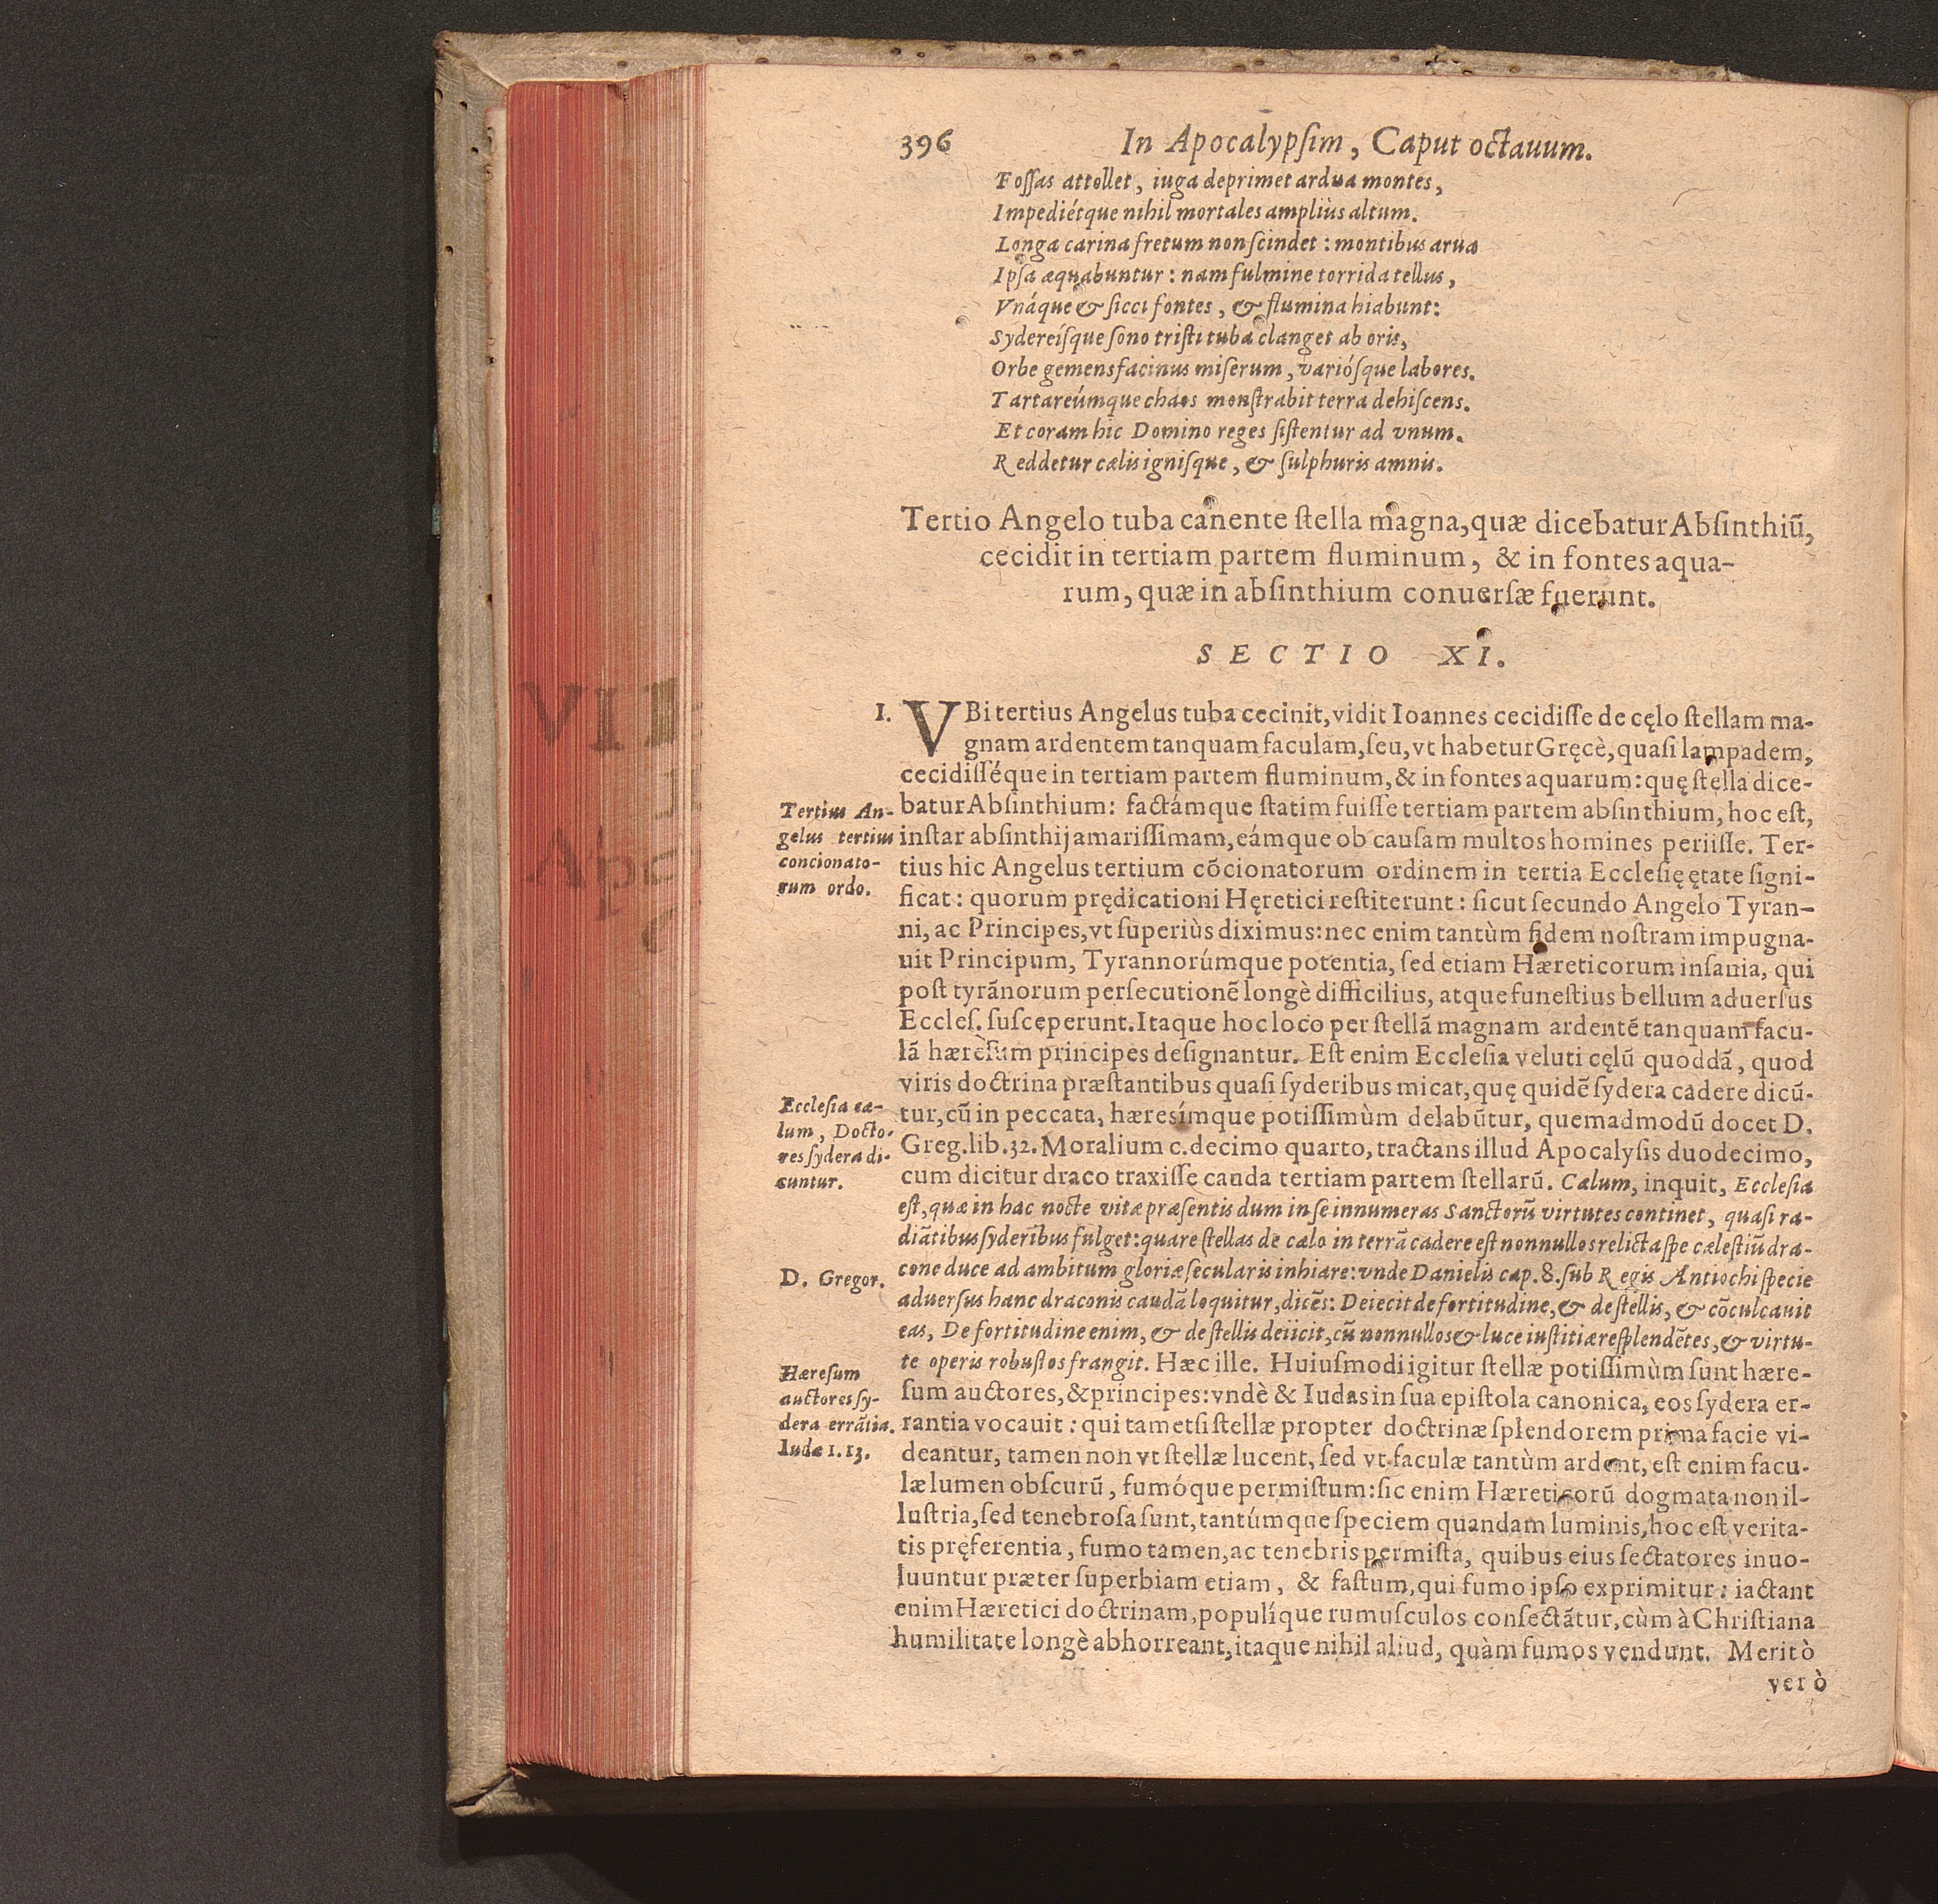 396 In Apocalypſim, Caput octauum.
Foſſas attollet, iuga deprimet ardua montes,
Impediétque nihil mortales ampliùs altum.
Longa carina fretum non ſcindet : montibus arua
Ipſa æquabuntur : nam fulmine torrida tellus,
Vnáque & ſicci fontes, & flumina hiabunt:
Sydereíſque ſono triſti tuba clanget ab oris,
Orbe gemens facinus miſerum, varióſque labores.
Tartareúmque chaos monſtrabit terra dehiſcens.
Et coram hic Domino reges ſiſtentur ad vnum.
Reddetur cælis igniſque, & ſulphuris amnis.
Tertio Angelo tuba canente ſtella magna, quæ dicebatur Abſinthiũ,
cecidit in tertiam partem fluminum, & in fontes aqua-
rum, quæ in abſinthium conuerſæ fuerunt.
SECTIO XI.
I. VBi tertius Angelus tuba cecinit, vidit Ioannes cecidiſſe de cęlo ſtellam ma-
gnam ardentem tanquam faculam, ſeu, vt habetur Gręcè, quaſi lampadem,
cecidiſſéque in tertiam partem fluminum, & in fontes aquarum: quę ſtella dice-
batur Abſinthium: factámque ſtatim fuiſſe tertiam partem abſinthium, hoc eſt,
inſtar abſinthij amariſſimam, eámque ob cauſam multos homines periiſſe. Ter-
tius hic Angelus tertium cõcionatorum ordinem in tertia Eccleſię ętate ſigni-
ficat : quorum prędicationi Hęretici reſtiterunt : ſicut ſecundo Angelo Tyran-
ni, ac Principes, vt ſuperiùs diximus: nec enim tantùm fidem noſtram impugna-
uit Principum, Tyrannorúmque potentia, ſed etiam Hæreticorum inſania, qui
poſt tyrãnorum perſecutionẽ longè difficilius, atque funeſtius bellum aduerſus
Eccleſ. ſuſceperunt. Itaque hoc loco per ſtellã magnam ardentẽ tanquam facu-
lã hærèſum principes deſignantur. Eſt enim Eccleſia veluti cęlũ quoddã, quod
viris doctrina præſtantibus quaſi ſyderibus micat, quę quidẽ ſydera cadere dicũ-
tur, cũ in peccata, hæreſímque potiſſimùm delabũtur, quemadmodũ docet D.
Greg. lib. 32. Moralium c. decimo quarto, tractans illud Apocalyſis duodecimo,
cum dicitur draco traxiſſe cauda tertiam partem ſtellarũ. Cælum, inquit, Eccleſia
eſt, quæ in hac nocte vitæ præſentis dum in ſe innumeras Sanctorũ virtutes continet, quaſi ra-
diãtibus ſyderibus fulget: quare ſtellas de cælo in terrã cadere eſt nonnullos relicta ſpe cæleſtiũ dra-
cone duce ad ambitum gloriæ ſecularis inhiare: vnde Danielis cap. 8. ſub Regis Antiochi ſpecie
aduerſus hanc draconis caudã loquitur, dicẽs: Deiecit de fortitudine, & de ſtellis, & cõculcauit
eas, De fortitudine enim, & de ſtellis deiicit, cũ nonnullos & luce iuſtitiæ reſplendẽtes, & virtu-
te operis robuſtos frangit. Hæc ille. Huiuſmodi igitur ſtellæ potiſſimùm ſunt hære-
ſum auctores, & principes: vndè & Iudas in ſua epiſtola canonica, eos ſydera er-
rantia vocauit : qui tametſi ſtellæ propter doctrinæ ſplendorem prima facie vi-
deantur, tamen non vt ſtellæ lucent, ſed vt faculæ tantùm ardent, eſt enim facu-
læ lumen obſcurũ, fumóque permiſtum: ſic enim Hæreticorũ dogmata non il-
luſtria, ſed tenebroſa ſunt, tantúmque ſpeciem quandam luminis, hoc eſt verita-
tis pręferentia, fumo tamen, ac tenebris permiſta, quibus eius ſectatores inuo-
luuntur præter ſuperbiam etiam, & faſtum, qui fumo ipſo exprimitur : iactant
enim Hæretici doctrinam, populíque rumuſculos conſectãtur, cùm à Chriſtiana
humilitate longè abhorreant, itaque nihil aliud, quàm fumos vendunt. Meritò
verò
Tertius An-
gelus tertius
concionato-
rum ordo.
Eccleſia cæ-
lum, Docto-
res ſydera di-
cuntur.
D. Gregor.
Hæreſum
auctores ſy-
dera errãtia.
Iudæ 1.13.